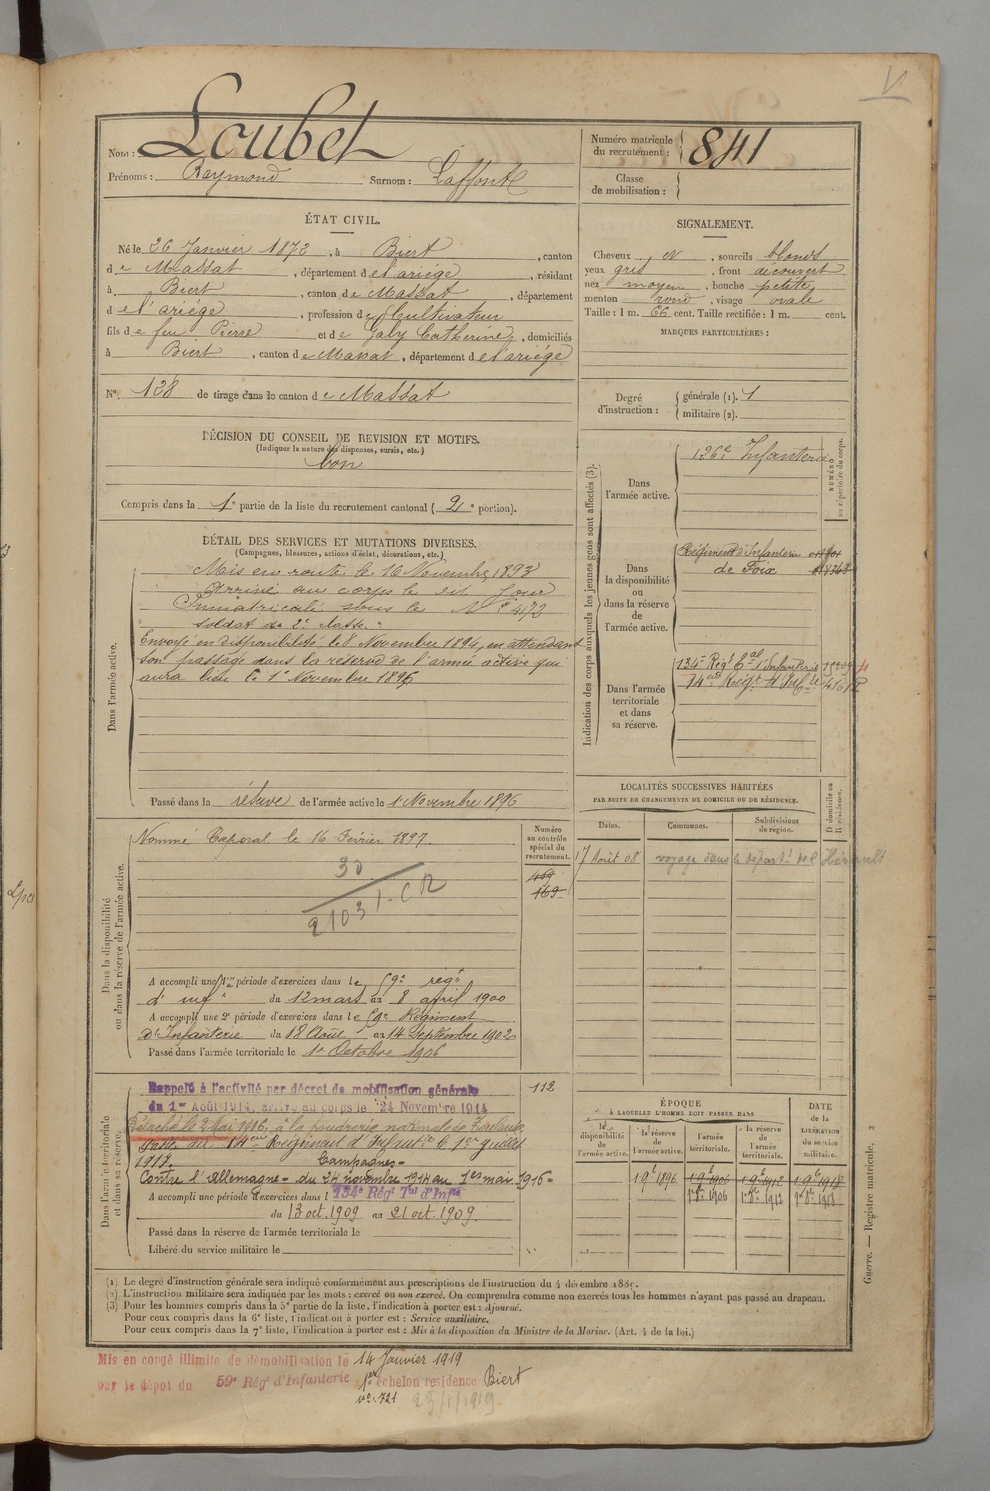 V
Nom : Loubet
Prénoms : Raymond Surnom : Laffont
Numéro matricule du recrutement : 841
Classe de mobilisation :
ÉTAT CIVIL.
Né le 26 Janvier 1872, à Biert, canton
de Massat, département de l'ariège, résidant
à Biert, canton de Massat, département
de l'ariège, profession de Cultivateur
fils de feu Pierre et de Galy Catherine, domiciliés
à Biert, canton de Massat, département de l'ariège
N° 128 de tirage dans le canton de Massat
SIGNALEMENT.
Cheveux et, sourcils blonds
yeux gris, front découvert
nez moyen, bouche petite,
menton rond, visage ovale
Taille : 1 m. 66 cent. Taille rectifiée : 1 m. cent.
MARQUES PARTICULIÈRES :
Degré d'instruction : générale (1). 1
militaire (2).
DÉCISION DU CONSEIL DE REVISION ET MOTIFS.
(Indiquer la nature des dispenses, sursis, etc.)
bon
Compris dans la 1e partie de la liste du recrutement cantonal (2e portion).
DÉTAIL DES SERVICES ET MUTATIONS DIVERSES.
(Campagnes, blessures, actions d'éclat, décorations, etc.)
Dans l'armée active.
Mis en route le 16 Novembre 1893
Arrivé au corps le dit Jour
Immatriculé sous le N° 4172
soldat de 2e classe.
Envoyé en disponibilité le 8 Novembre 1894, en attendant
son passage dans la réserve de l'armée active qui
aura lieu le 1er Novembre 1896
Passé dans la réserve de l'armée active le 1 Novembre 1896
Indication des corps auxquels les jeunes gens sont affectés (3).
NUMÉRO au répertoire du corps.
Dans l'armée active.
126e Infanterie
Dans la disponibilité ou dans la réserve de l'armée active.
Régiment d'Infanterie
de Foix
Dans l'armée territoriale et dans sa réserve.
134e Régt Tal d'Infanterie
14e Régt d'Inf
LOCALITÉS SUCCESSIVES HABITÉES
PAR SUITE DE CHANGEMENTS DE DOMICILE OU DE RÉSIDENCE.
Dates. Communes. Subdivisions de région. D domicile ou R résidence.
17 Août 08 voyage dans le départt de l'Hérault
Dans la disponibilité ou dans la réserve de l'armée active.
Numéro au contrôle spécial du recrutement.
Nommé Caporal le 16 Février 1897
469
169
30
2103 1-CR
A accompli une 1re période d'exercices dans le 59e régt
d'infie du 12 mars au 8 avril 1900
A accompli une 2e période d'exercices dans le 59e Régiment
d'Infanterie du 18 Août au 14 Septembre 1902
Passé dans l'armée territoriale le 1er Octobre 1906
Dans l'armée territoriale et dans sa réserve.
Rappelé à l'activité par décret de mobilisation générale
du 1er Août 1914, arrivé au corps le 24 Novembre 1914
112
Détaché le 2 Mai 1916, à la poudrerie nationale de Toulouse
Passé au 14eme Régiment d'Infantie le 1er Juillet
1917. Campagnes -
Contre l'allemagne - du 24 novembre 1914 au 1er mai 1916 -
A accompli une période d'exercices dans l 134e Régt Tal d'Infie
du 13 oct. 1909 au 21 oct. 1909
Passé dans la réserve de l'armée territoriale le
Libéré du service militaire le
ÉPOQUE
À LAQUELLE L'HOMME DOIT PASSER DANS
la disponibilité de l'armée active. la réserve de l'armée active. l'armée territoriale. la réserve de l'armée territoriale.
DATE de la LIBÉRATION du service militaire.
1 9e 1896 1 9e 1906 1 9e 1912 1 9e 1918
1er 8e 1906 1er 8e 1912 1er 8e 1918
Guerre. — Registre matricule. 2
(1) Le degré d'instruction générale sera indiqué conformément aux prescriptions de l'instruction du 4 décembre 1889.
(2) L'instruction militaire sera indiquée par les mots : exercé ou non exercé. On comprendra comme non exercés tous les hommes n'ayant pas passé au drapeau.
(3) Pour les hommes compris dans la 5e partie de la liste, l'indication à porter est : Ajourné.
Pour ceux compris dans la 6e liste, l'indication à porter est : Service auxiliaire.
Pour ceux compris dans la 7e liste, l'indication à porter est : Mis à la disposition du Ministre de la Marine. (Art. 4 de la loi.)
Mis en congé illimité de démobilisation le 14 Janvier 1919
Par le dépôt du 59e Régt d'Infanterie 1er échelon résidence Biert
v° 721 23/1/1919.